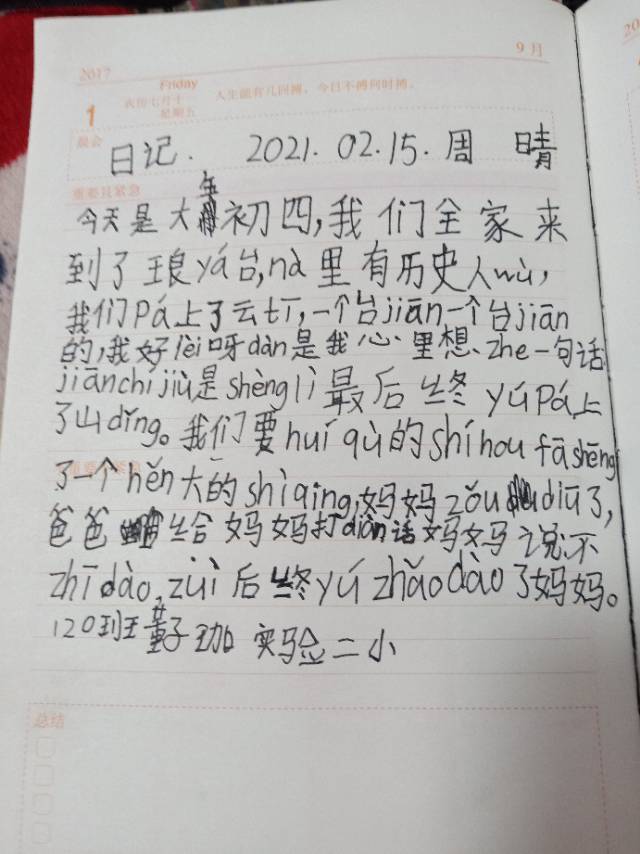 2017
9月
Friday
1
农历七月十一
星期五
人生能有几回搏，今日不搏何时搏。
晨会
日记. 2021.02.15.周 晴
重要且紧急
年
今天是大初四,我们全家来
到了琅yá台,nà里有历史人wù,
我们Pá上了云tī,一个台jiān一个台jiān
的,我好lèi呀dàn是我心里想、zhe一句话
jiānchijiù是shènglì最后终yúpá上
了山dǐng。我们要huí qù的shíhou fāshēng
了一个hěn大的shìqing,妈妈zǒu diū了,
爸爸给妈妈打diàn话妈妈说不
zhīdào,zùi后终yú zhǎodào了妈妈。
120班董子珈 实验二小
总结